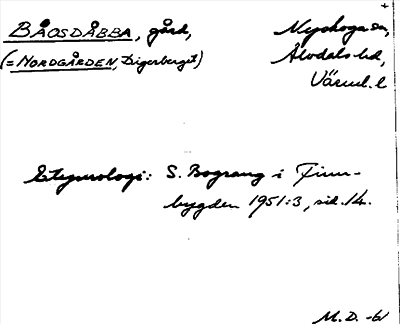 BÅOSDÅBBA, gård, Nyskoga sn,
(= NORDGÅRDEN, Digerberget) Älvdals hd,
Värml. l
Etymologi: S. Bograng i Finn-
bygden 1951:3, sid. 14.
M.D. -61